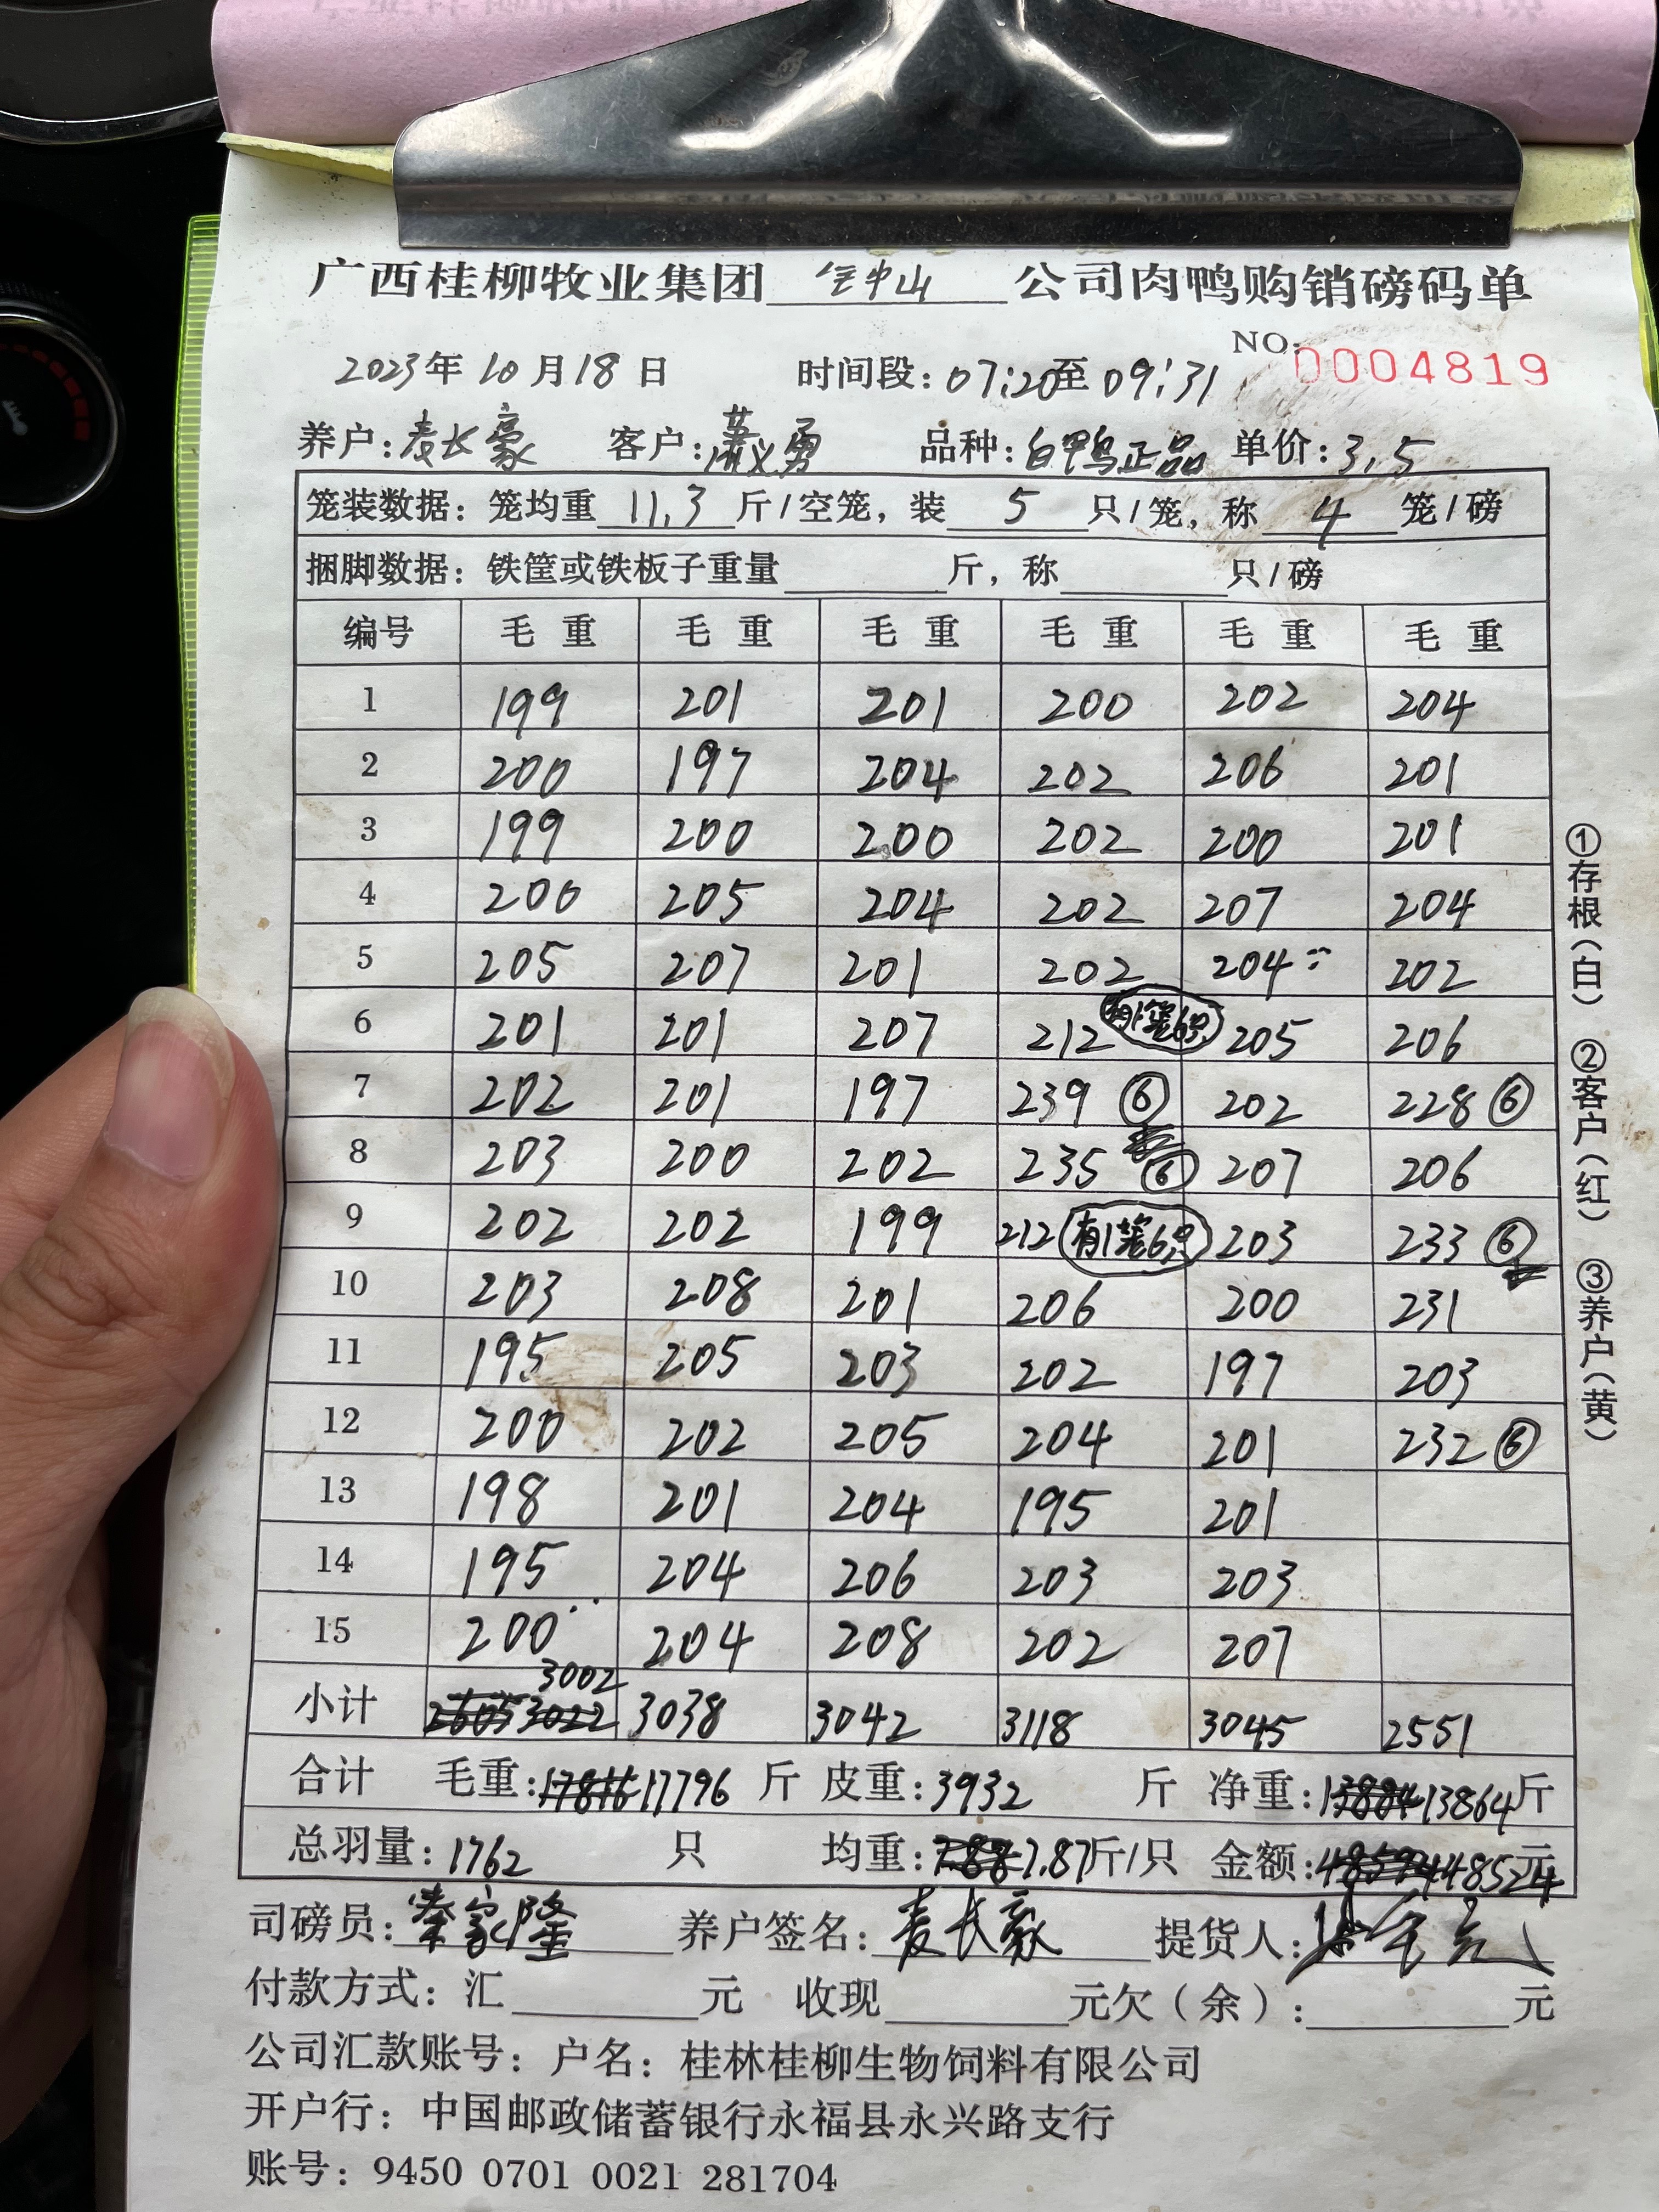 广西桂柳牧业集团 公司肉鸭购销磅码单
NO: 0004819
2023年10月18日 时间段:07:20至09:31
养户:麦长豪 客户:萧义勇 品种:白鸭正品 单价:3.5
笼装数据:笼均重 11.3 斤/空笼,装 5 只/笼,称 4 笼/磅
捆脚数据:铁筐或铁板子重量 斤,称 只/磅
编号 毛重 毛重 毛重 毛重 毛重 毛重
1 199 201 201 200 202 204
2 200 197 204 202 206 201
3 199 200 200 202 200 201
4 200 205 204 202 207 204
5 205 207 201 202 204 202
6 201 201 207 212 有1笼6只 205 206
7 202 201 197 239 ⑥ 202 228 ⑥
8 203 200 202 235 ⑥ 207 206
9 202 202 199 212 有1笼6只 203 233 ⑥
10 203 208 201 206 200 231
11 195 205 203 202 197 203
12 200 202 205 204 201 232 ⑥
13 198 201 204 195 201
14 195 204 206 203 203
15 200 204 208 202 207
小计 3002 3038 3042 3118 3045 2551
合计 毛重:17796 斤 皮重:3932 斤 净重:13864斤
总羽量:1762 只 均重:7.87斤/只 金额:48524元
司磅员:秦家隆 养户签名:麦长豪 提货人:
付款方式:汇 元 收现 元欠(余): 元
公司汇款账号:户名:桂林桂柳生物饲料有限公司
开户行:中国邮政储蓄银行永福县永兴路支行
账号:9450 0701 0021 281704
①存根(白) ②客户(红) ③养户(黄)